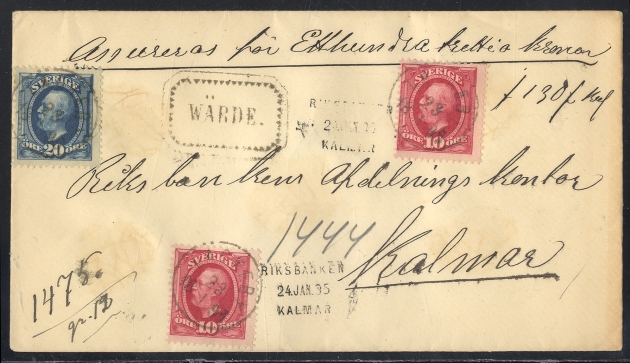 Assureras för Etthundratrettio kronor
SVERIGE
20
ÖRE ÖRE
WÄRDE.
RIKSBANKEN
24.JAN.95
KALMAR
SVERIGE
10
ÖRE ÖRE
f 130 f
Riksbankens Afdelningskontor
1444
Kalmar
SVERIGE
10
ÖRE ÖRE
RIKSBANKEN
24.JAN.95
KALMAR
1475
gr. 13